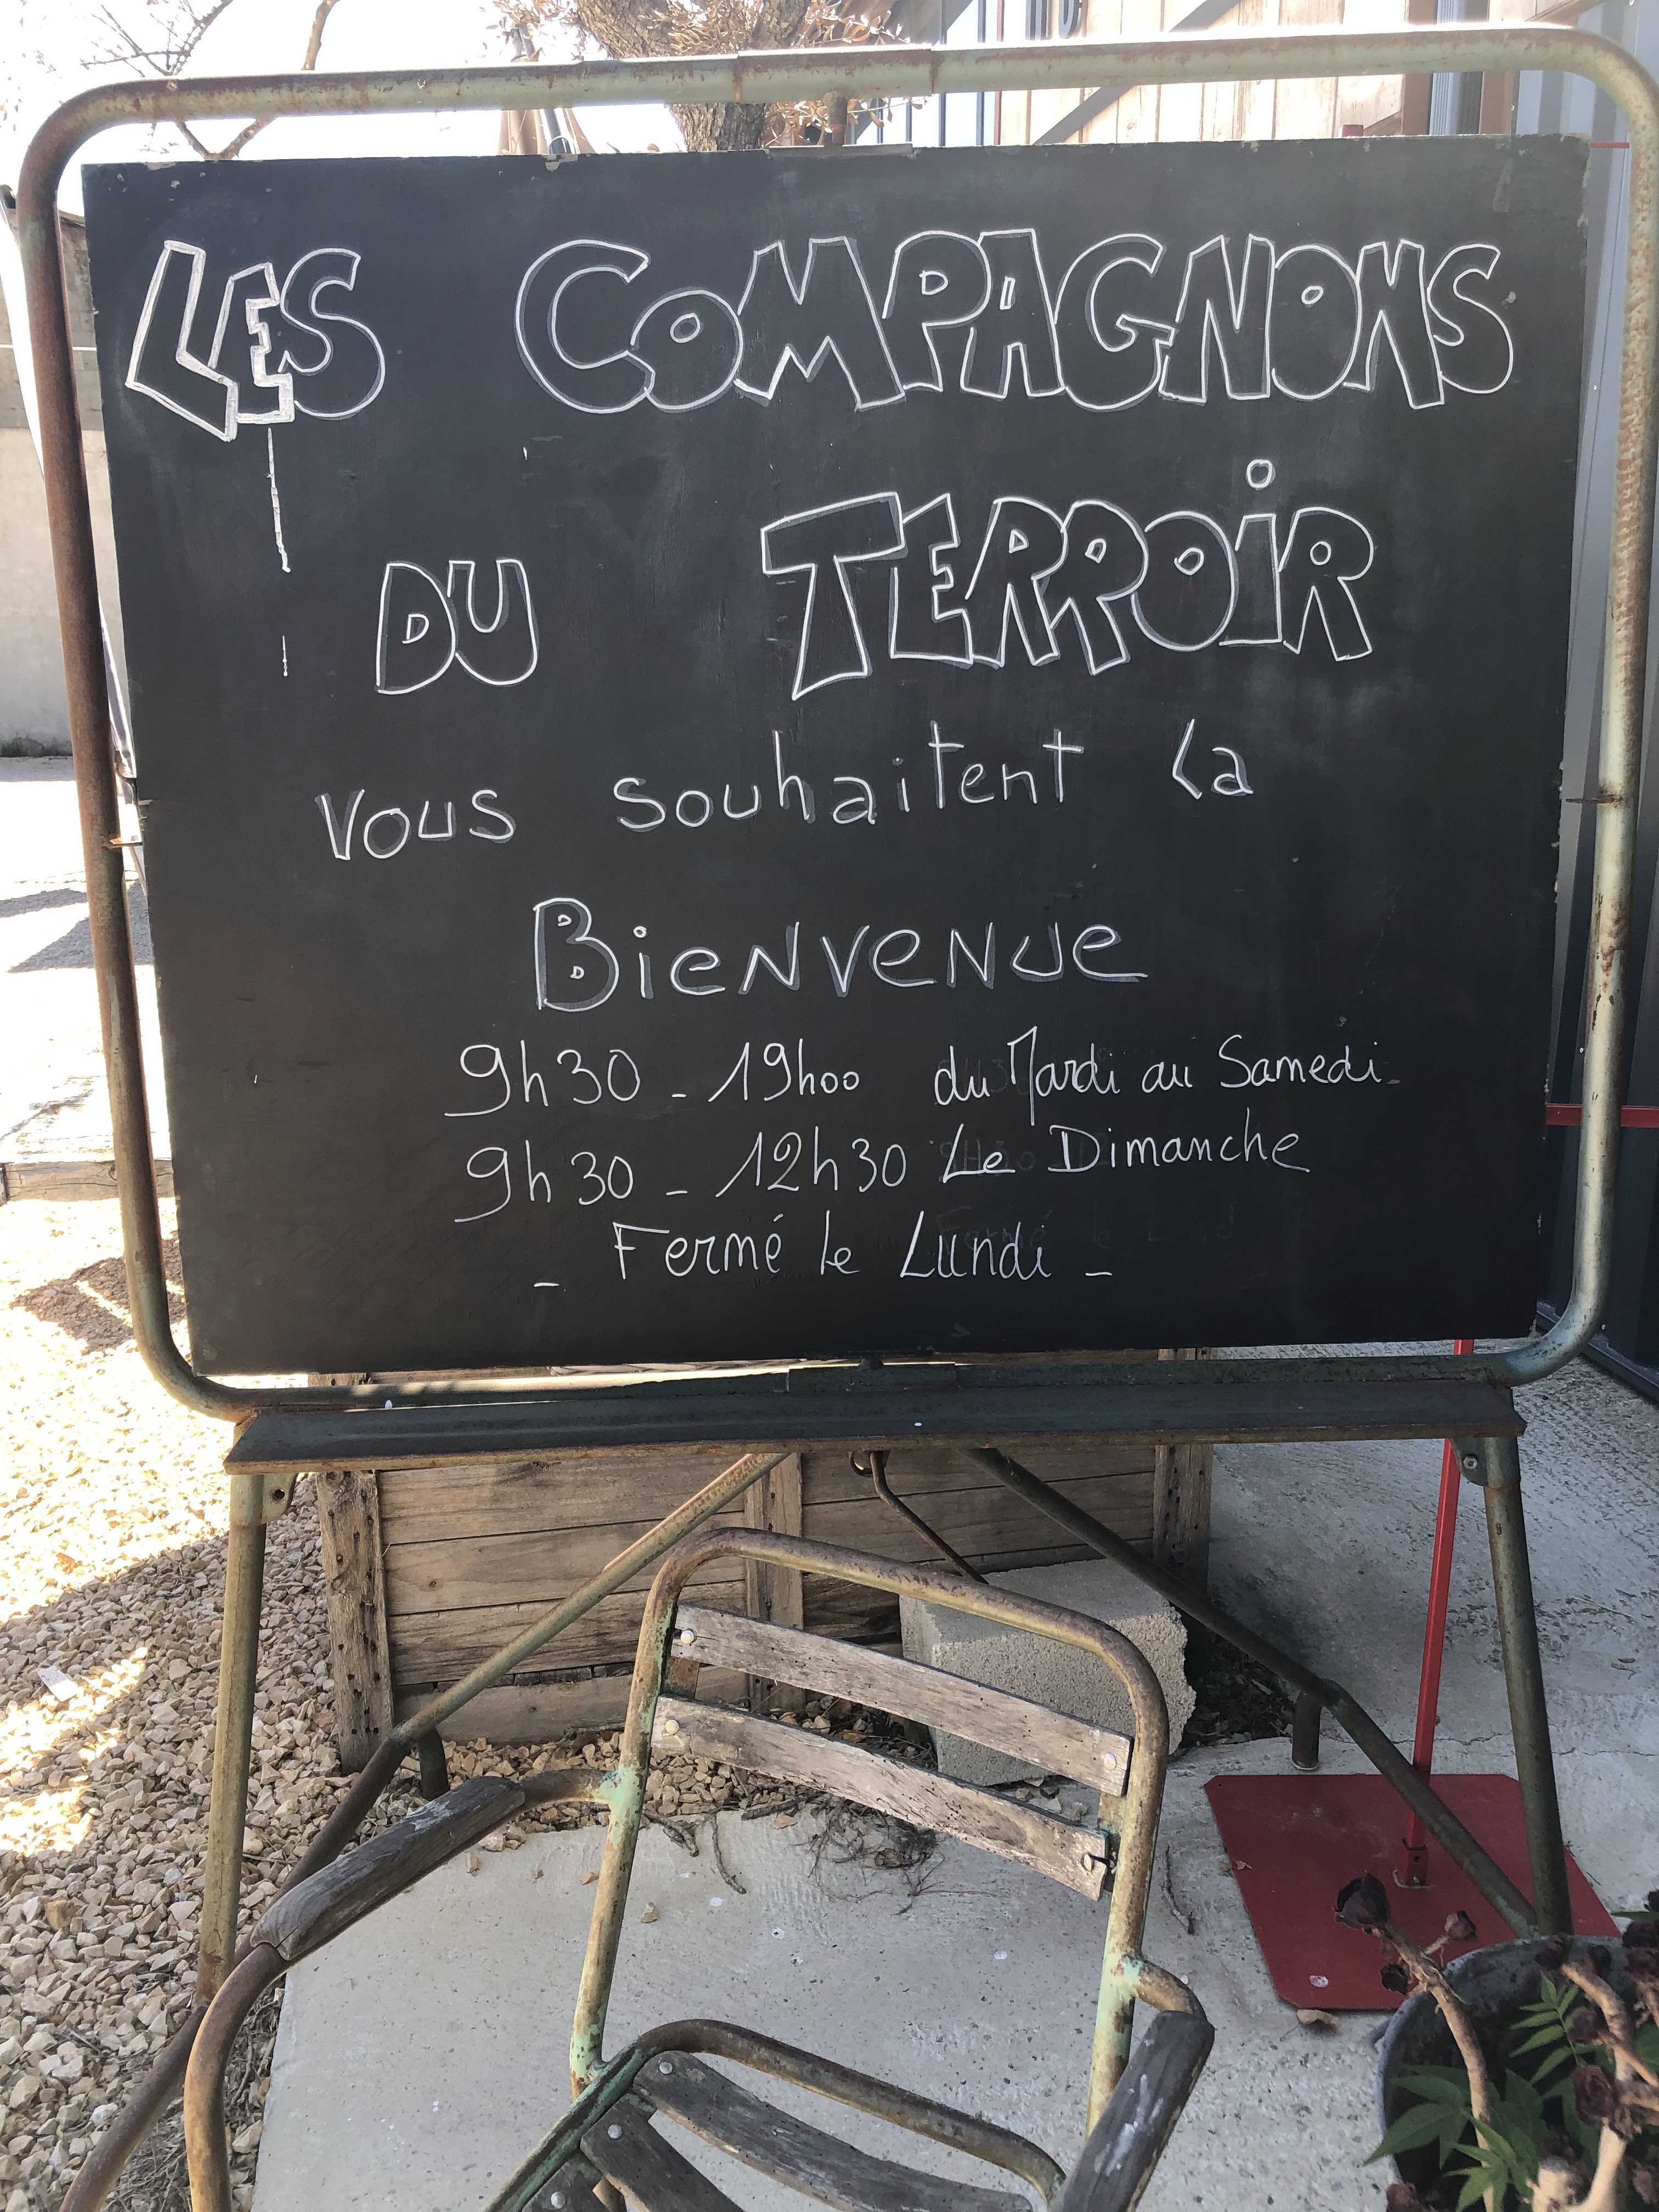 LES COMPAGNONS
DU TERROIR
Vous souhaitent la
BieNveNue
9h30 - 19h00 du Mardi au Samedi
9h30 - 12h30 Le Dimanche
- Fermé le Lundi -